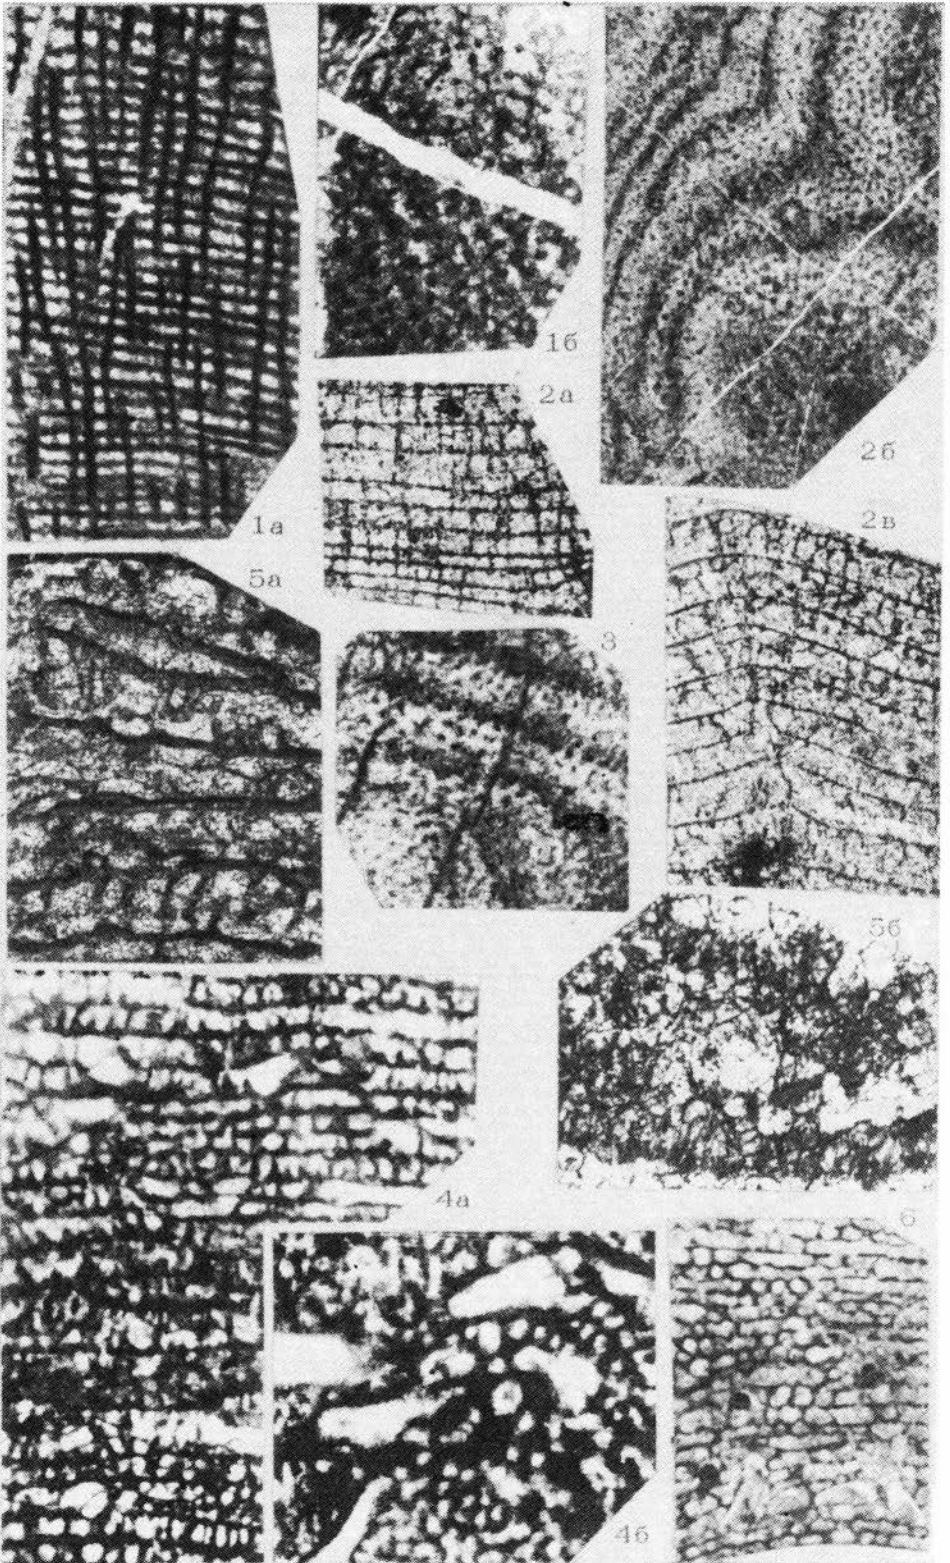 1б
2а
2б
1а
2в
5а
3
5б
4а
6
4б